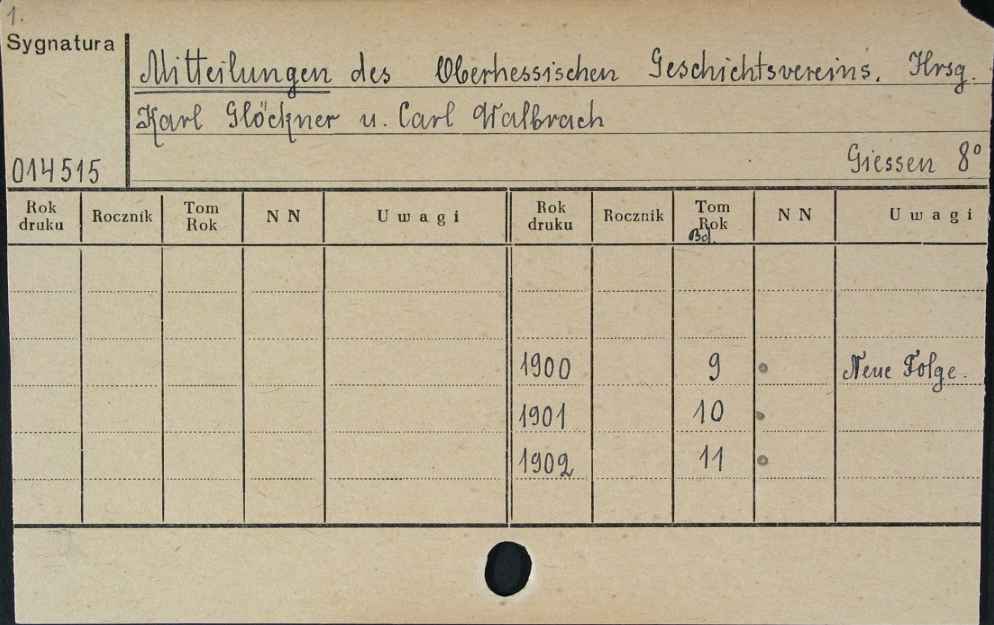 1.
Sygnatura
Mitteilungen des Oberhessischen Geschichtsvereins. Hrsg.
Karl Glöckner u. Carl Walbrach
014515
Giessen 8°
Rok druku Rocznik Tom Rok N N Uwagi Rok druku Rocznik Tom Rok Bd. N N Uwagi
1900 9 Neue Folge.
1901 10
1902 11